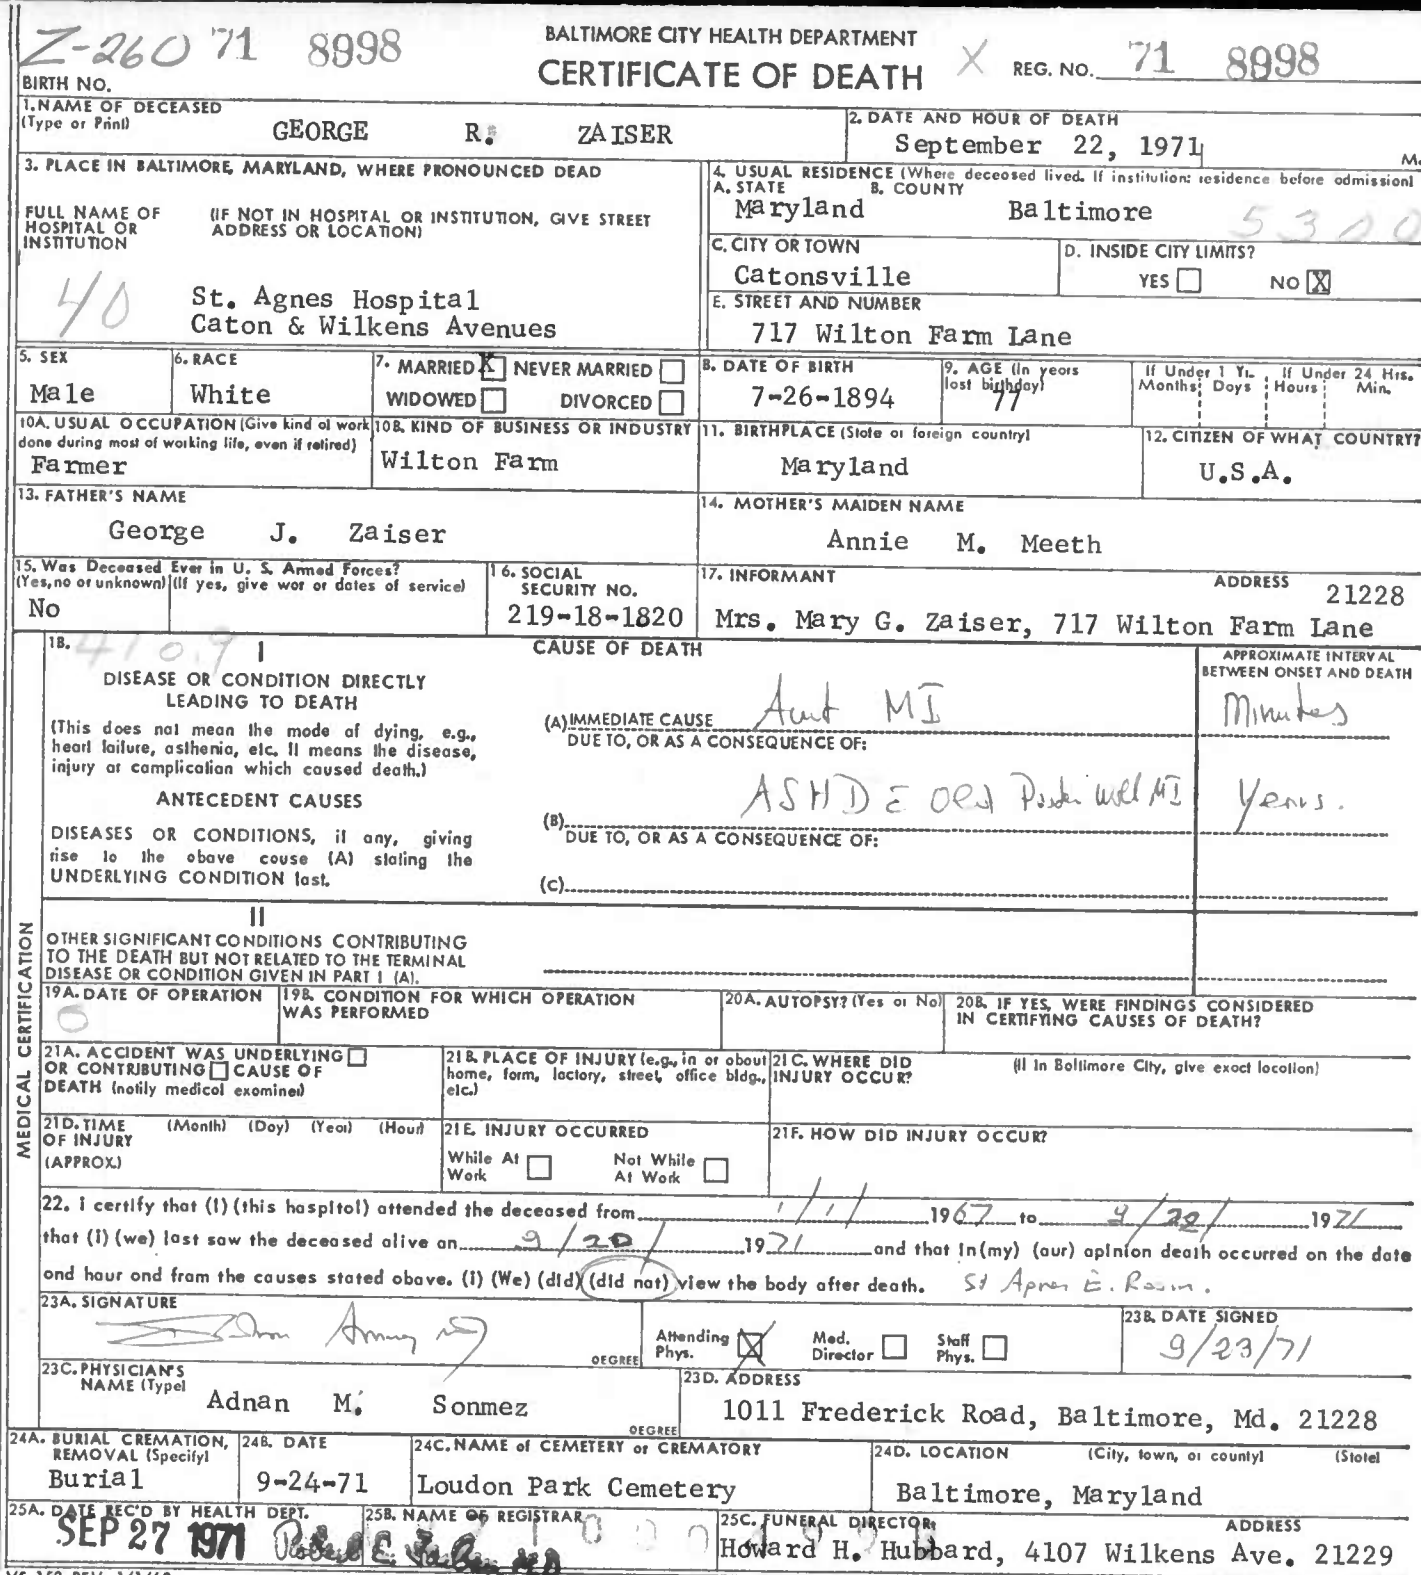 Z-260 71 8998
BALTIMORE CITY HEALTH DEPARTMENT
CERTIFICATE OF DEATH
X REG. NO. 71 8998
BIRTH NO.
1. NAME OF DECEASED
(Type or Print)
GEORGE R. ZAISER
2. DATE AND HOUR OF DEATH
September 22, 1971
M.
3. PLACE IN BALTIMORE, MARYLAND, WHERE PRONOUNCED DEAD
FULL NAME OF HOSPITAL OR INSTITUTION
(IF NOT IN HOSPITAL OR INSTITUTION, GIVE STREET
ADDRESS OR LOCATION)
40
St. Agnes Hospital
Caton & Wilkens Avenues
4. USUAL RESIDENCE (Where deceased lived. If institution: residence before admission)
A. STATE B. COUNTY
Maryland Baltimore 5300
C. CITY OR TOWN
Catonsville
D. INSIDE CITY LIMITS?
YES NO X
E. STREET AND NUMBER
717 Wilton Farm Lane
5. SEX
Male
6. RACE
White
7. MARRIED X NEVER MARRIED
WIDOWED DIVORCED
8. DATE OF BIRTH
7-26-1894
9. AGE (In years
last birthday)
77
If Under 1 Yr. If Under 24 Hrs.
Months Days Hours Min.
10A. USUAL OCCUPATION (Give kind of work
done during most of working life, even if retired)
Farmer
10B. KIND OF BUSINESS OR INDUSTRY
Wilton Farm
11. BIRTHPLACE (State or foreign country)
Maryland
12. CITIZEN OF WHAT COUNTRY?
U.S.A.
13. FATHER'S NAME
George J. Zaiser
14. MOTHER'S MAIDEN NAME
Annie M. Meeth
15. Was Deceased Ever in U. S. Armed Forces?
(Yes, no or unknown) (If yes, give war or dates of service)
No
16. SOCIAL
SECURITY NO.
219-18-1820
17. INFORMANT ADDRESS 21228
Mrs. Mary G. Zaiser, 717 Wilton Farm Lane
MEDICAL CERTIFICATION
18. 4109 I
DISEASE OR CONDITION DIRECTLY
LEADING TO DEATH
(This does not mean the mode of dying, e.g.,
heart failure, asthenia, etc. It means the disease,
injury or complication which caused death.)
ANTECEDENT CAUSES
DISEASES OR CONDITIONS, if any, giving
rise to the above cause (A) stating the
UNDERLYING CONDITION last.
CAUSE OF DEATH
APPROXIMATE INTERVAL
BETWEEN ONSET AND DEATH
(A) IMMEDIATE CAUSE MI Minutes
DUE TO, OR AS A CONSEQUENCE OF:
(B) ASHD Old Wall MI Years.
DUE TO, OR AS A CONSEQUENCE OF:
(C)
II
OTHER SIGNIFICANT CONDITIONS CONTRIBUTING
TO THE DEATH BUT NOT RELATED TO THE TERMINAL
DISEASE OR CONDITION GIVEN IN PART I (A).
19A. DATE OF OPERATION
0
19B. CONDITION FOR WHICH OPERATION
WAS PERFORMED
20A. AUTOPSY? (Yes or No)
20B. IF YES, WERE FINDINGS CONSIDERED
IN CERTIFYING CAUSES OF DEATH?
21A. ACCIDENT WAS UNDERLYING
OR CONTRIBUTING CAUSE OF
DEATH (notify medical examiner)
21B. PLACE OF INJURY (e.g., in or about
home, farm, factory, street, office bldg.,
etc.)
21C. WHERE DID
INJURY OCCUR?
(If in Baltimore City, give exact location)
21D. TIME (Month) (Day) (Year) (Hour)
OF INJURY
(APPROX.)
21E. INJURY OCCURRED
While At Work Not While At Work
21F. HOW DID INJURY OCCUR?
22. I certify that (I) (this hospital) attended the deceased from 1/1/ 1967 to 9/22/ 1971
that (I) (we) last saw the deceased alive on 9/20/ 1971 and that in (my) (our) opinion death occurred on the date
and hour and from the causes stated above. (I) (We) (did) (did not) view the body after death. St Agnes E. Room.
23A. SIGNATURE
DEGREE
Attending Phys. X Med. Director Staff Phys.
23B. DATE SIGNED
9/23/71
23C. PHYSICIAN'S
NAME (Type)
Adnan M. Sonmez
DEGREE
23D. ADDRESS
1011 Frederick Road, Baltimore, Md. 21228
24A. BURIAL CREMATION,
REMOVAL (Specify)
Burial
24B. DATE
9-24-71
24C. NAME of CEMETERY or CREMATORY
Loudon Park Cemetery
24D. LOCATION (City, town, or county) (State)
Baltimore, Maryland
25A. DATE REC'D BY HEALTH DEPT.
SEP 27 1971
25B. NAME OF REGISTRAR
Robert E.
25C. FUNERAL DIRECTOR ADDRESS
Howard H. Hubbard, 4107 Wilkens Ave. 21229